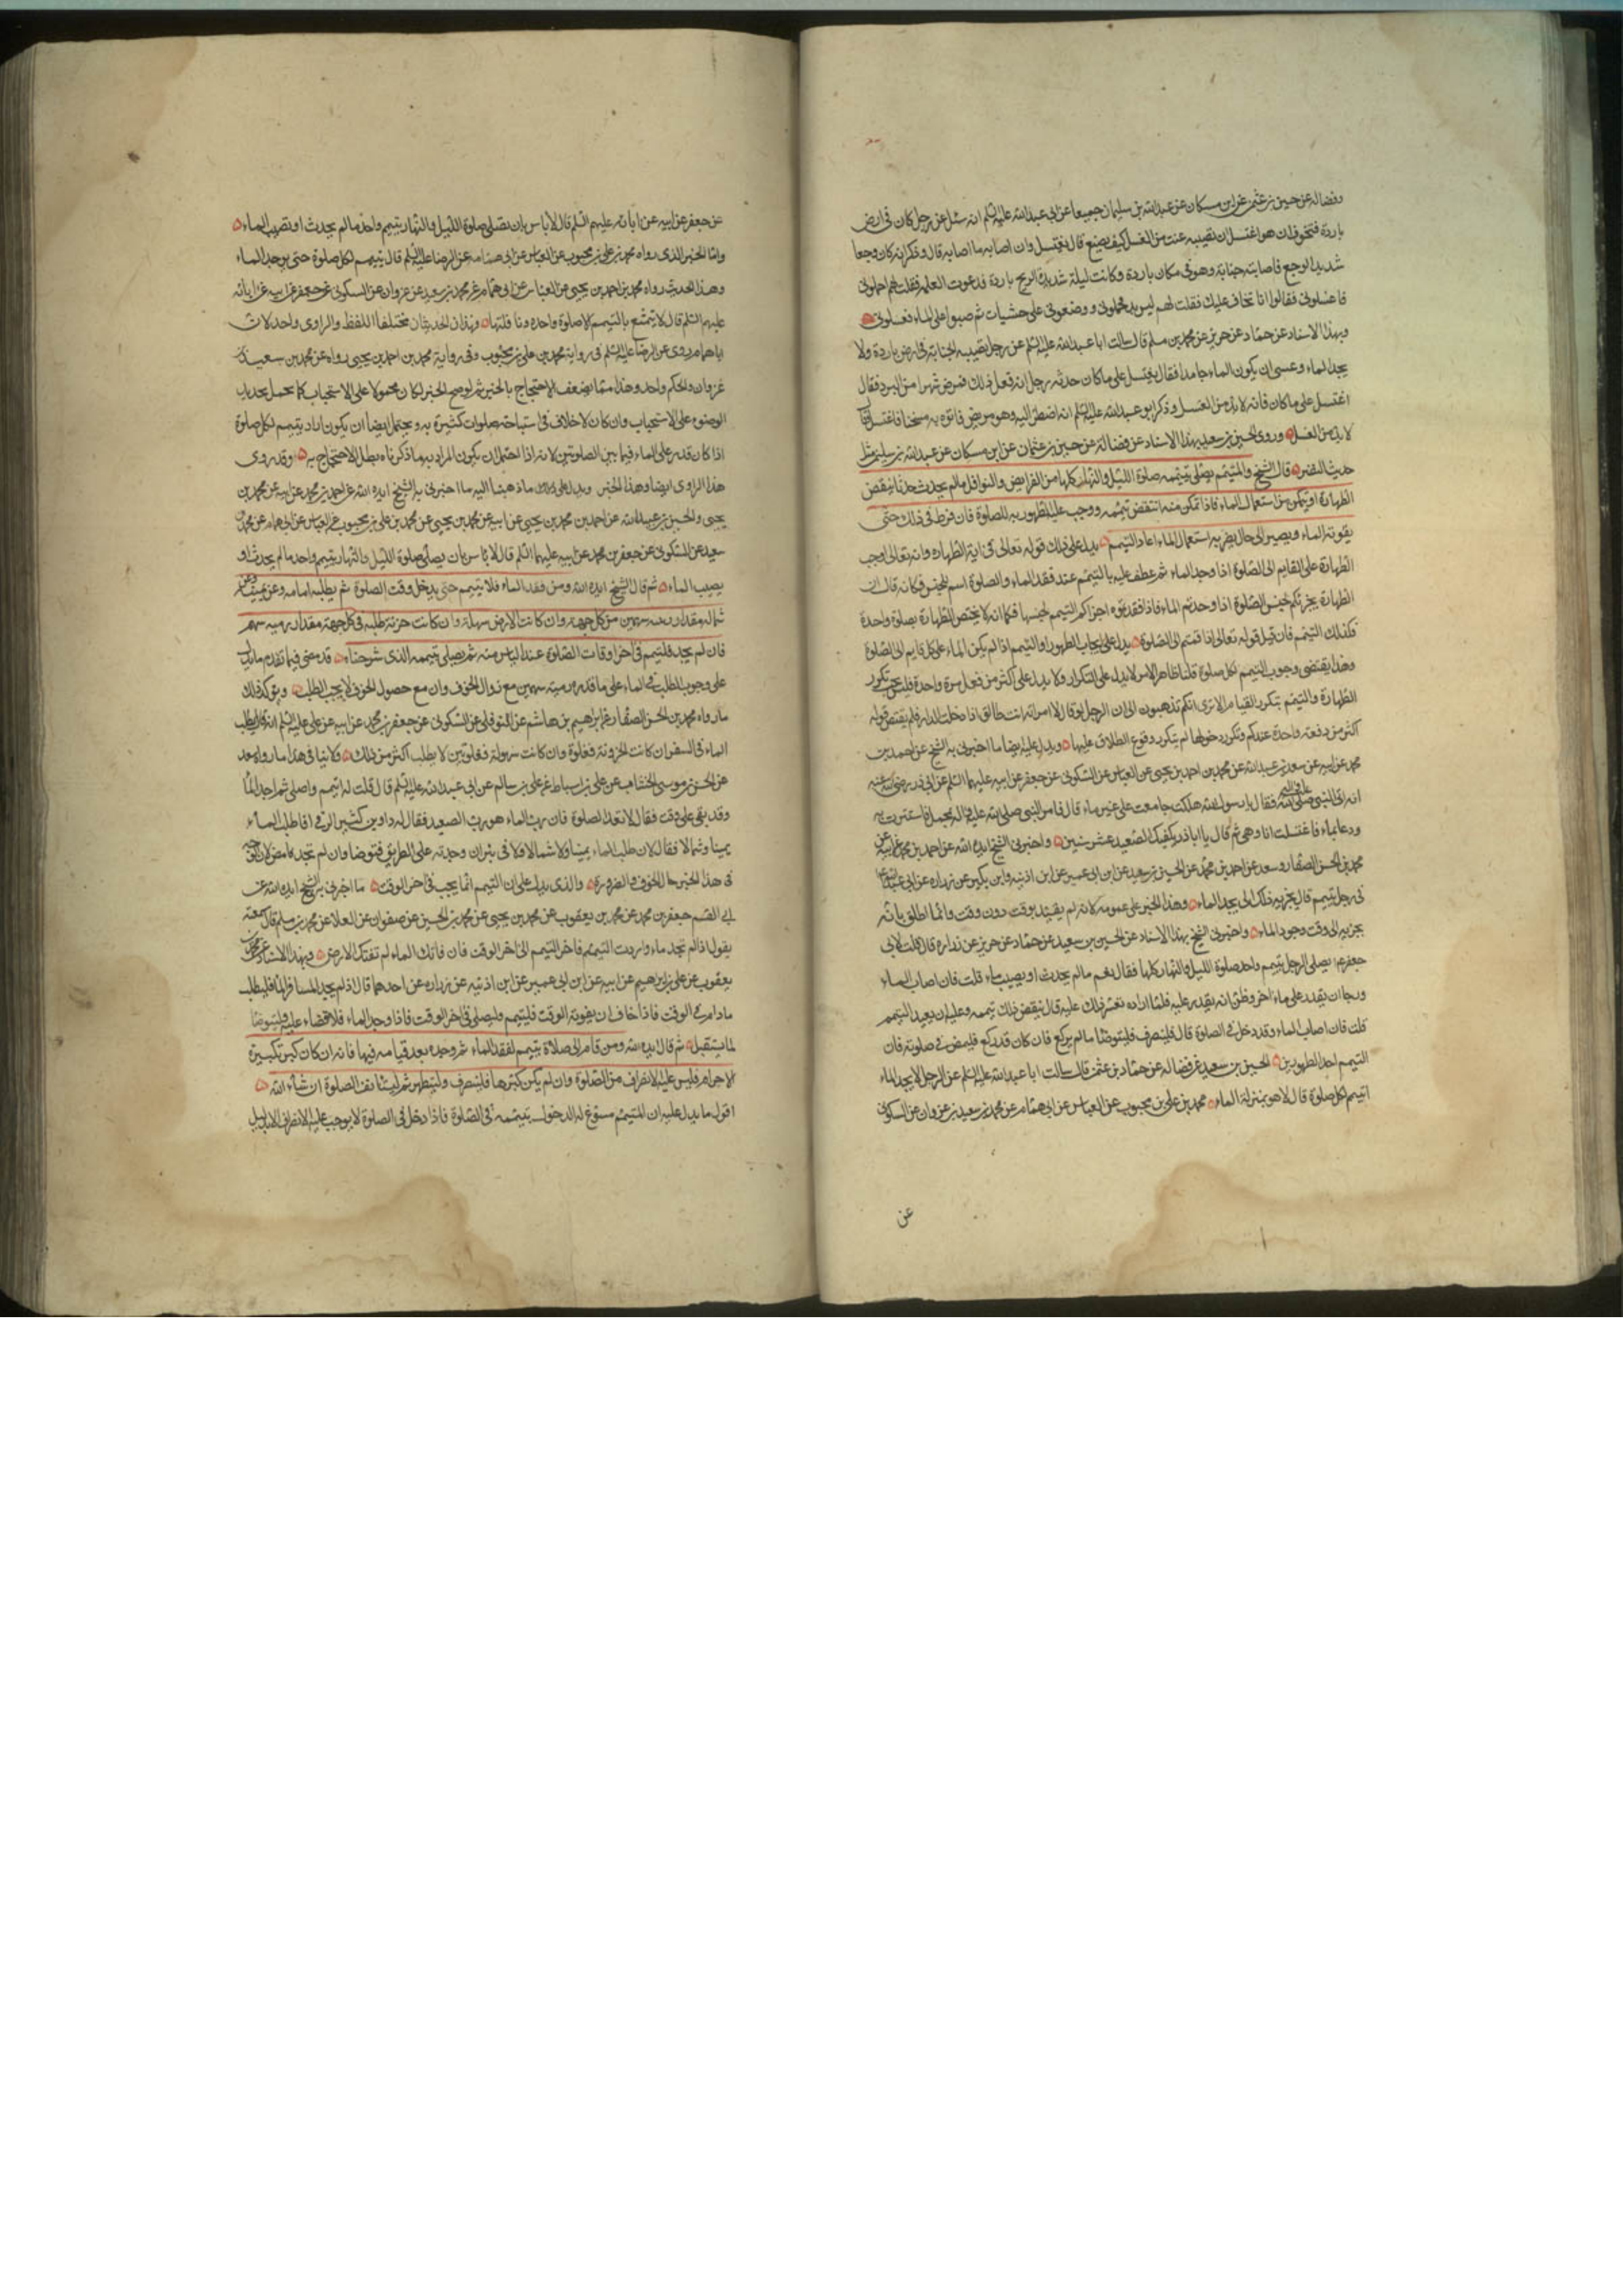 وفضالة عن حسين بن عثمن عن ابن مسكان عن عبدالله بن سليمان جميعا عن ابي عبدالله عليه السلم انه سئل عن رجل كان في ارض
باردة فتخوف ان هو اغتسل ان يصيبه عنت من الغسل كيف يصنع قال يغتسل وان اصابه ما اصابه قال وذكر انه كان وجعا
شديد الوجع فاصابته جنابة وهو في مكان باردة وكانت ليلة شديدة الريح باردة فدعوت الغلمة فقلت لهم احملوني
فاغسلوني فقالوا انا نخاف عليك فقلت لهم ليس بد فحملوني ووضعوني على خشبات ثم صبوا على الماء فغسلوني
وبهذا الاسناد عن حماد عن حريز عن محمد بن مسلم قال سالت ابا عبدالله عليه السلم عن رجل تصيبه الجنابة في ارض باردة ولا
يجد الماء وعسى ان يكون الماء جامدا فقال يغتسل على ما كان حدثه رجل انه فعل ذلك فمرض شهرا من البرد فقال
اغتسل على ما كان فانه لا بد من الغسل وذكر ابو عبدالله عليه السلم انه اضطر اليه وهو مريض فاتوه به مسخنا فاغتسل وقال
لا بد من الغسل وروى الحسين بن سعيد بهذا الاسناد عن فضالة عن حسين بن عثمان عن ابن مسكان عن عبدالله بن سليمن مثل
حديث النضر قال الشيخ والمتيمم يصلي بتيممه صلوة الليل والنهار كلها من الفرايض والنوافل ما لم يحدث حدثا ينقض
الطهارة او يتمكن من استعمال الماء فاذا تمكن منه انتقض تيممه ووجب عليه الطهور به للصلوة فان فرط في ذلك حتى
يفوته الماء ويصير الى حال يضر به استعمال الماء اعاد التيمم يدل على ذلك قوله تعالى في اية الطهارة وانه تعالى اوجب
الطهارة على القايم الى الصلوة اذا وجد الماء ثم عطف عليه بالتيمم عند فقد الماء والصلوة اسم للجنس فكانه قال ان
الطهارة يجزئكم لجنس الصلوة اذا وجدتم الماء فاذا فقدتموه اجزاكم التيمم لجنسها فكما انه لا يختص الطهارة بصلوة واحدة
فكذلك التيمم فان قيل قوله تعالى اذا قمتم الى الصلوة يدل على ايجاب الطهور او التيمم اذا لم يكن الماء على كل قايم الى الصلوة
وهذا يقتضي وجوب التيمم لكل صلوة قلنا ظاهر الامر لا يدل على التكرار ولا يدل على اكثر من فعل مرة واحدة فليس يجب تكرر
الطهارة والتيمم بتكرر القيام الا ترى انكم تذهبون الى ان الرجل لو قال لامراته انت طالق اذا دخلت الدار فلم يقتض قوله
اكثر من دفعة واحدة عندكم وتكرر دخولها لم يتكرر وقوع الطلاق عليها ويدل عليه ايضا ما اخبرني به الشيخ عن احمد بن
محمد عن ابيه عن سعد بن عبدالله عن محمد بن احمد بن يحيى عن العباس عن السكوني عن جعفر عن ابيه عليهما السلم عن ابي ذر رضي الله عنه
انه اتى النبي صلى الله فقال يا رسول الله هلكت جامعت على غير ماء قال فامر النبي صلى الله عليه واله بمحمل فاستترت به
ودعا بماء فاغتسلت انا وهي ثم قال يا ابا ذر يكفيك الصعيد عشر سنين واخبرني الشيخ ايده الله عن احمد بن محمد عن ابيه عن
محمد بن الحسن الصفار وسعد عن احمد بن محمد عن الحسين بن سعيد عن ابن ابي عمير عن ابن اذينه وابن بكير عن زراره عن ابي عبدالله
في رجل تيمم قال يجزيه ذلك الى ان يجد الماء وهذا الخبر على عمومه لانه لم يقيد بوقت دون وقت وانما اطلق بانه
يجزيه الى وقت وجود الماء واخبرني الشيخ بهذا الاسناد عن الحسين بن سعيد عن حماد عن حريز عن زراره قال قلت لابي
جعفر يصلي الرجل بتيمم واحد صلوة الليل والنهار كلها فقال نعم ما لم يحدث او يصيب ماء قلت فان اصاب الماء
ورجا ان يقدر على ماء اخر وظن انه يقدر عليه فلما اراده تعسر ذلك عليه قال ينقض ذلك تيممه وعليه ان يعيد التيمم
قلت فان اصاب الماء وقد دخل في الصلوة قال فلينصرف فليتوضا ما لم يركع فان كان قد ركع فليمض في صلوته فان
التيمم احد الطهورين الحسين بن سعيد عن فضالة عن حماد بن عثمن قال سالت ابا عبدالله عليه السلم عن الرجل لا يجد الماء
اتيمم لكل صلوة قال لا هو بمنزلة الماء محمد بن علي بن محبوب عن العباس عن ابي همام عن محمد بن سعيد بن غزوان عن السكوني
عن
عن جعفر عن ابيه عن ابائه عليهم السلم قال لا باس بان تصلي صلوة الليل والنهار بتيمم واحد ما لم يحدث او تصيب الماء
واما الخبر الذي رواه محمد بن علي بن محبوب عن العباس عن ابي همامه عن الرضا عليه السلم قال يتيمم لكل صلوة حتى يوجد الماء
وهذا الحديث رواه محمد بن احمد بن يحيى عن العباس عن ابي همام عن محمد بن سعيد عن غزوان عن السكوني عن جعفر عن ابيه عن ابائه
عليهم السلم قال لا يتمتع بالتيمم الا صلوة واحده ونافلتها وهذان الحديثان مختلفا اللفظ والراوي واحد لان
ابا همام روى عن الرضا عليه السلم في رواية محمد بن علي بن محبوب وفي رواية محمد بن احمد بن يحيى رواه عن محمد بن سعيد بن
غزوان والحكم واحد وهذا مما يضعف الاحتجاج بالخبر ثم لو صح الخبر لكان محمولا على الاستحباب كما يحمل تجديد
الوضوء على الاستحباب وان كان لا خلاف في استباحة صلوات كثيرة به ويحتمل ايضا ان يكون اراد يتيمم لكل صلوة
اذا كان قدر على الماء فيما بين الصلوتين لانه اذا احتمل ان يكون المراد به ما ذكرناه بطل الاحتجاج به وقد روى
هذا الراوي ايضا وهذا الخبر ويدل على ما ذهبنا اليه ما اخبرني به الشيخ ايده الله عن احمد بن محمد عن ابيه عن محمد بن
يحيى والحسين بن عبيدالله عن احمد بن محمد بن يحيى عن ابيه عن محمد بن يحيى عن محمد بن علي بن محبوب عن العباس عن ابي همام عن محمد بن
سعيد عن السكوني عن جعفر بن محمد عن ابيه عليهما السلم قال لا باس بان يصلي صلوة الليل والنهار بتيمم واحد ما لم يحدث او
يصيب الماء ثم قال الشيخ ايده الله ومن فقد الماء فلا يتيمم حتى يدخل وقت الصلوة ثم يطلبه امامه وعن يمينه وعن
شماله مقدار رمية سهمين من كل جهة وان كانت الارض سهلة وان كانت حزنة طلبه في كل جهة مقدار رمية سهم
فان لم يجد فليتيمم في اخر اوقات الصلوة عند الياس منه ثم يصلي بتيممه الذي شرحناه قد مضى فيما تقدم ما يدل
على وجوب الطلب في الماء على ما قدره رمية سهمين مع زوال الخوف وان مع حصول الخوف لا يجب الطلب ويؤكد ذلك
ما رواه محمد بن الحسن الصفار عن ابراهيم بن هاشم عن النوفلي عن السكوني عن جعفر بن محمد عن ابيه عن علي عليه السلم انه قال يطلب
الماء في السفر ان كانت الحزونة فغلوة وان كانت سهولة فغلوتين لا يطلب اكثر من ذلك ولا ينافي هذا ما رواه سعد
عن الحسن بن موسى الخشاب عن علي بن اسباط عن علي بن سالم عن ابي عبدالله عليه السلم قال قلت له اتيمم واصلي ثم اجد الماء
وقد بقي على وقت فقال لا تعد الصلوة فان رب الماء هو رب الصعيد فقال له داود بن كثير الرقي افاطلب الماء
يمينا وشمالا فقال لا تطلب الماء يمينا ولا شمالا ولا في بئر ان وجدته على الطريق فتوضا وان لم تجد فامض لان الوجه
في هذا الخبر حال الخوف والضرورة والذي يدل على ان التيمم انما يجب في اخر الوقت ما اخبرني به الشيخ ايده الله عن
ابي القسم جعفر بن محمد عن محمد بن يعقوب عن محمد بن يحيى عن محمد بن الحسين عن صفوان عن العلا عن محمد بن مسلم قال سمعته
يقول اذا لم تجد ماء واردت التيمم فاخر التيمم الى اخر الوقت فان فاتك الماء لم تفتك الارض وبهذا الاسناد عن محمد بن
يعقوب عن علي بن ابرهيم عن ابيه عن ابن ابي عمير عن ابن اذنيه عن زراره عن احدهما قال اذا لم يجد المسافر الماء فليطلب
ما دام في الوقت فاذا خاف ان يفوته الوقت فليتيمم وليصلي في اخر الوقت فاذا وجد الماء فلا قضاء عليه وليتوضا
لما يستقبل ثم قال ايده الله ومن قام الى صلاة بتيمم لفقد الماء ثم وجده بعد قيامه فيها فانه ان كان كبر تكبيرة
الاحرام فليس عليه الانصراف من الصلوة وان لم يكن كبرها فلينصرف وليتطهر ثم ليستانف الصلوة ان شاء الله
اقول ما يدل عليه ان المتيمم مسوغ له الدخول بتيممه في الصلوة فاذا دخل في الصلوة لا يوجب عليه الانصراف الا بدليل